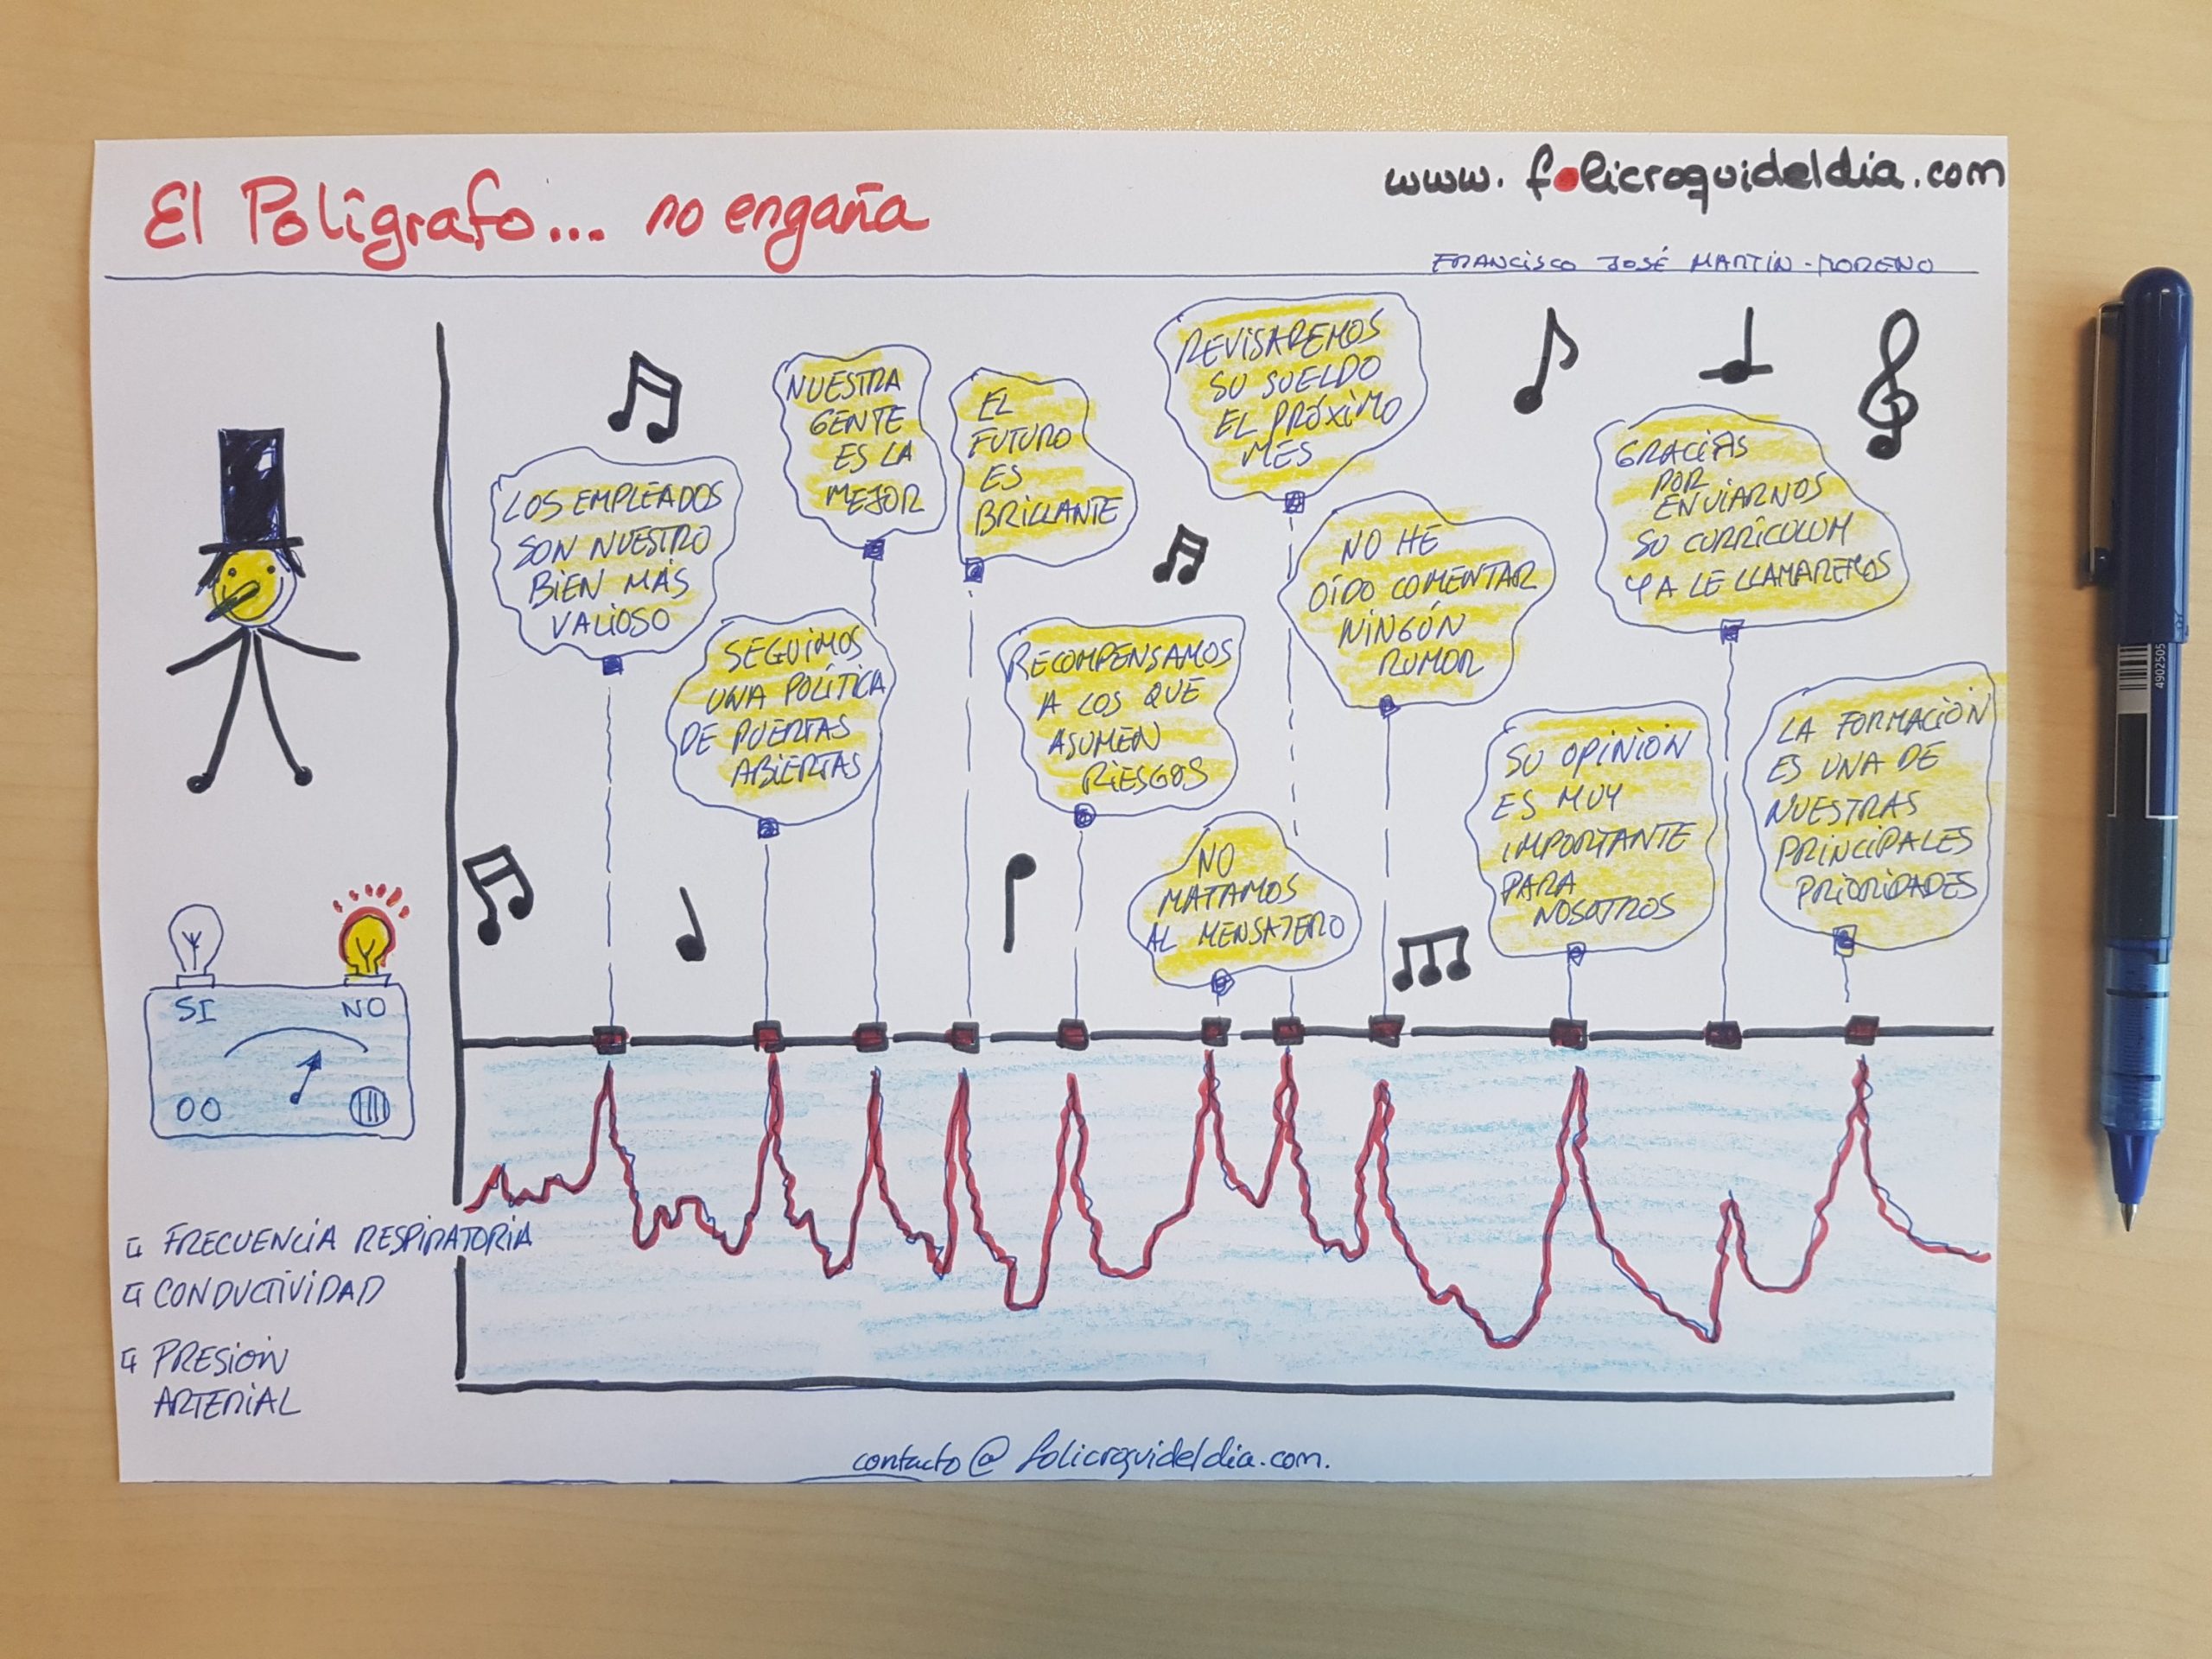 El Polígrafo... no engaña
www.folicroquideldia.com
FRANCISCO JOSÉ MARTÍN-MORENO
LOS EMPLEADOS
SON NUESTRO
BIEN MÁS
VALIOSO
SEGUIMOS
UNA POLÍTICA
DE PUERTAS
ABIERTAS
NUESTRA
GENTE
ES LA
MEJOR
EL
FUTURO
ES
BRILLANTE
RECOMPENSAMOS
A LOS QUE
ASUMEN
RIESGOS
NO
MATAMOS
AL MENSAJERO
REVISAREMOS
SU SUELDO
EL PRÓXIMO
MES
NO HE
OÍDO COMENTAR
NINGÚN
RUMOR
SU OPINIÓN
ES MUY
IMPORTANTE
PARA
NOSOTROS
GRACIAS
POR
ENVIARNOS
SU CURRÍCULUM
YA LE LLAMAREMOS
LA FORMACIÓN
ES UNA DE
NUESTRAS
PRINCIPALES
PRIORIDADES
SI NO
FRECUENCIA RESPIRATORIA
CONDUCTIVIDAD
PRESIÓN
ARTERIAL
contacto@folicroquideldia.com.
4902505